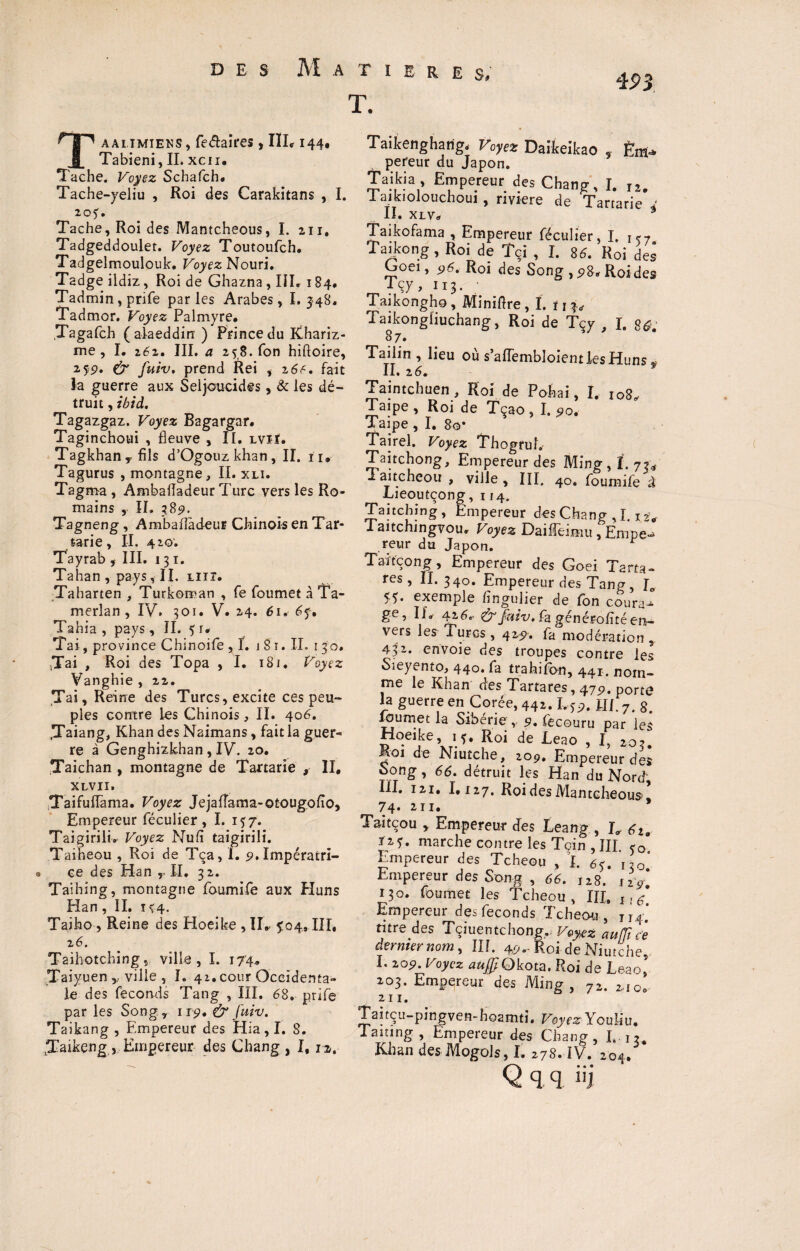 DES MATIERES, 493
T.
TAALIMIENS, fectaires, III. 144.
Tabieni, II. XCII.
Tache. Voyez Schafch.
Tache-yeliu, Roi des Carakitans, I.
205.
Tache, Roi des Mantcheous, I. 211.
Tadgeddoulet. Voyez Toutoufch.
Tadgelmoulouk. Voyez Nouri.
Tadge ildiz, Roi de Ghazna, III. 184.
Tadmin, prife par les Arabes, I. 348.
Tadmor. Voyez Palmyre.
Tagafch (alaeddin) Prince du Khariz-
me, I. 262. III. a 258. fon hiftoire,
259. & fuiv. prend Rei, 266. fait
la guerre aux Seljoucides, & les dé-
truit, ibid.
Tagazgaz. Voyez Bagargar.
Taginchoui, fleuve, II. LVII.
Tagkhan, fils d'Ogouz khan, II. 11.
Tagurus, montagne, II. XLI.
Tagma, Ambaffadeur Turc vers les Ro-
mains, II. 389.
Tagneng, Ambaffadeur Chinois en Tar-
tarie, II. 420.
Tayrab, III. 131.
Tahan, pays, II. LIII.
Taharten, Turkoman, fe foumet à Ta-
merlan, IV. 301. V. 24. 61. 65.
Tahia, pays, II. 51.
Tai, province Chinoife, I. 181. II. 130.
Tai, Roi des Topa, I. 181. Voyez
Vanghie, 22.
Tai, Reine des Turcs, excite ces peu-
ples contre les Chinois, II. 406.
Taiang, Khan des Naimans, fait la guer-
re à Genghizkhan, IV. 20.
Taichan, montagne de Tartarie, II.
XLVII.
Taifuffama. Voyez Jejaffama-otougofio,
Empereur féculier, I. 157.
Taigirili. Voyez Nufi taigirili.
Taiheou, Roi de Tça, I. 9. Impératri-
ce des Han, II. 32.
Taihing, montagne foumife aux Huns
Han, II. 154.
Taiho, Reine des Hoeike, II. 504, III.
26.
Taihotching, ville, I. 174.
Taiyuen, ville, I. 42. cour Occidenta-
le des feconds Tang, III. 68. prife
par les Song, 119. & fuiv.
Taikang, Empereur des Hia, I. 8.
Taikeng, Empereur des Chang, I. 12.
Taikenghang. Voyez Daikeikao, Em-
pereur du Japon.
Taikia, Empereur des Chang, I. 12.
Taikiolouchoui, riviere de Tartarie,
II. XLV.
Taikofama, Empereur féculier, I. 157.
Taikong, Roi de Tçi, I. 86. Roi des
Goei, 96. Roi des Song, 98. Roi des
Tçy, 113.
Taikongho, Miniftre, I. 113.
Taikongliuchang, Roi de Tçy, I. 86.
87.
Tailin, lieu où s'affembloient les Huns,
II. 26.
Taintchuen, Roi de Pohai, I. 108.
Taipe, Roi de Tçao, I. 90.
Taipe, I. 80.
Tairel. Voyez Thogrul.
Taitchong, Empereur des Ming, I. 73.
Taitcheou, ville, III. 40. foumife à
Lieoutçong, 114.
Taitching, Empereur des Chang, I. 12.
Taitchingvou. Voyez Daiffeimu, Empe-
reur du Japon.
Taitçong, Empereur des Goei Tarta-
res, II. 340. Empereur des Tang, I.
55. exemple fingulier de fon coura-
ge, II. 426. & fuiv. fa générofité en-
vers les Turcs, 429. fa modération,
432. envoie des troupes contre les
Sieyento, 440. fa trahifon, 441. nom-
me le Khan des Tartares, 479. porte
la guerre en Corée, 442. I. 59. III. 7. 8.
foumet la Sibérie, 9. fecouru par les
Hoeike, 15. Roi de Leao, I, 203.
Roi de Niutche, 209. Empereur des
Song, 66. détruit les Han du Nord,
III. 121. I. 127. Roi des Mantcheous,
74. 211.
Taitçou, Empereur des Leang, I. 62.
125. marche contre les Tçin, III. 50.
Empereur des Tcheou, I. 65. 130.
Empereur des Song, 66. 128. 129.
130. foumet les Tcheou, III. 116.
Empereur des feconds Tcheou, 114.
titre des Tçiuentchong. Voyez auffi ce
dernier nom, III. 49. Roi de Niutche,
I. 209. Voyez auffi Okota. Roi de Leao,
203. Empereur des Ming, 72. 210.
211.
Taitçu-pingven-hoamti. Voyez Youliu.
Taiting, Empereur des Chang, I. 13.
Khan des Mogols, I. 278. IV. 204.
Qqq iij